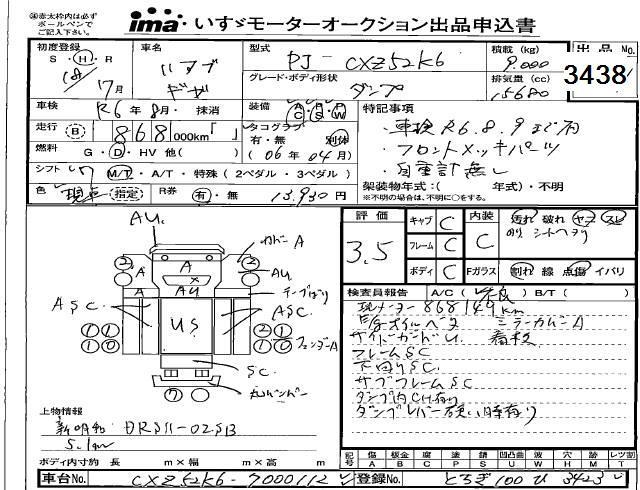 ㊟赤太枠内は必ず
ボールペンで
ご記入下さい。
ima いすゞモーターオークション出品申込書
初度登録 車名 型式 積載(kg) 出品No.
S・H・R いすゞ PJ-CXZ52K6 9.000 3438
18/7月 ギガ グレード・ボディ形状 排気量(cc)
ダンプ 15680
車検 R6年8月・抹消 装備 AC・PS・PW 特記事項
走行 B 868 000km「 」 タコグラフ 有・無 別体 ・車検R6.8.9まで有
燃料 G・D・HV 他( ) (06年04月) ・フロントメッキパーツ
シフト 7 M/T・A/T・特殊(2ペダル・3ペダル) ・自重計無し
色 現車(指定) R券 有・無 13,930円 架装物年式:( 年式)・不明
※不明の場合は、不明に○をする。
評価 キャブ C 内装 汚れ 破れ ヤケ スレ
3.5 フレーム C C シートヘタリ
ボディ C Fガラス 割れ 線 点傷 イバリ
検査員報告 A/C( 不良 ) B/T( )
現メーター868149km
E/Gオイルベタ ミラーカバーA
サイドガードU 看板
フレームSC
下回りSC
サブフレームSC
ダンプ内CH有り
ダンプレバー硬い時有り
AU
カバーA
2 A A 2
AU
A AU A
ASC US ASC
11 10 21 10
フェンダーA
SC
7
上物情報
新明和 DRS11-02SB
5.1m
ボディ内寸約 長 m×幅 m×高 m
記号 傷 板金 腐 塗 錆 凹凸曲 波 穴 跡 レツ割
A B C P S U W H M T
車台No. CXZ52K6-7000112 登録No. とちぎ100ひ3423